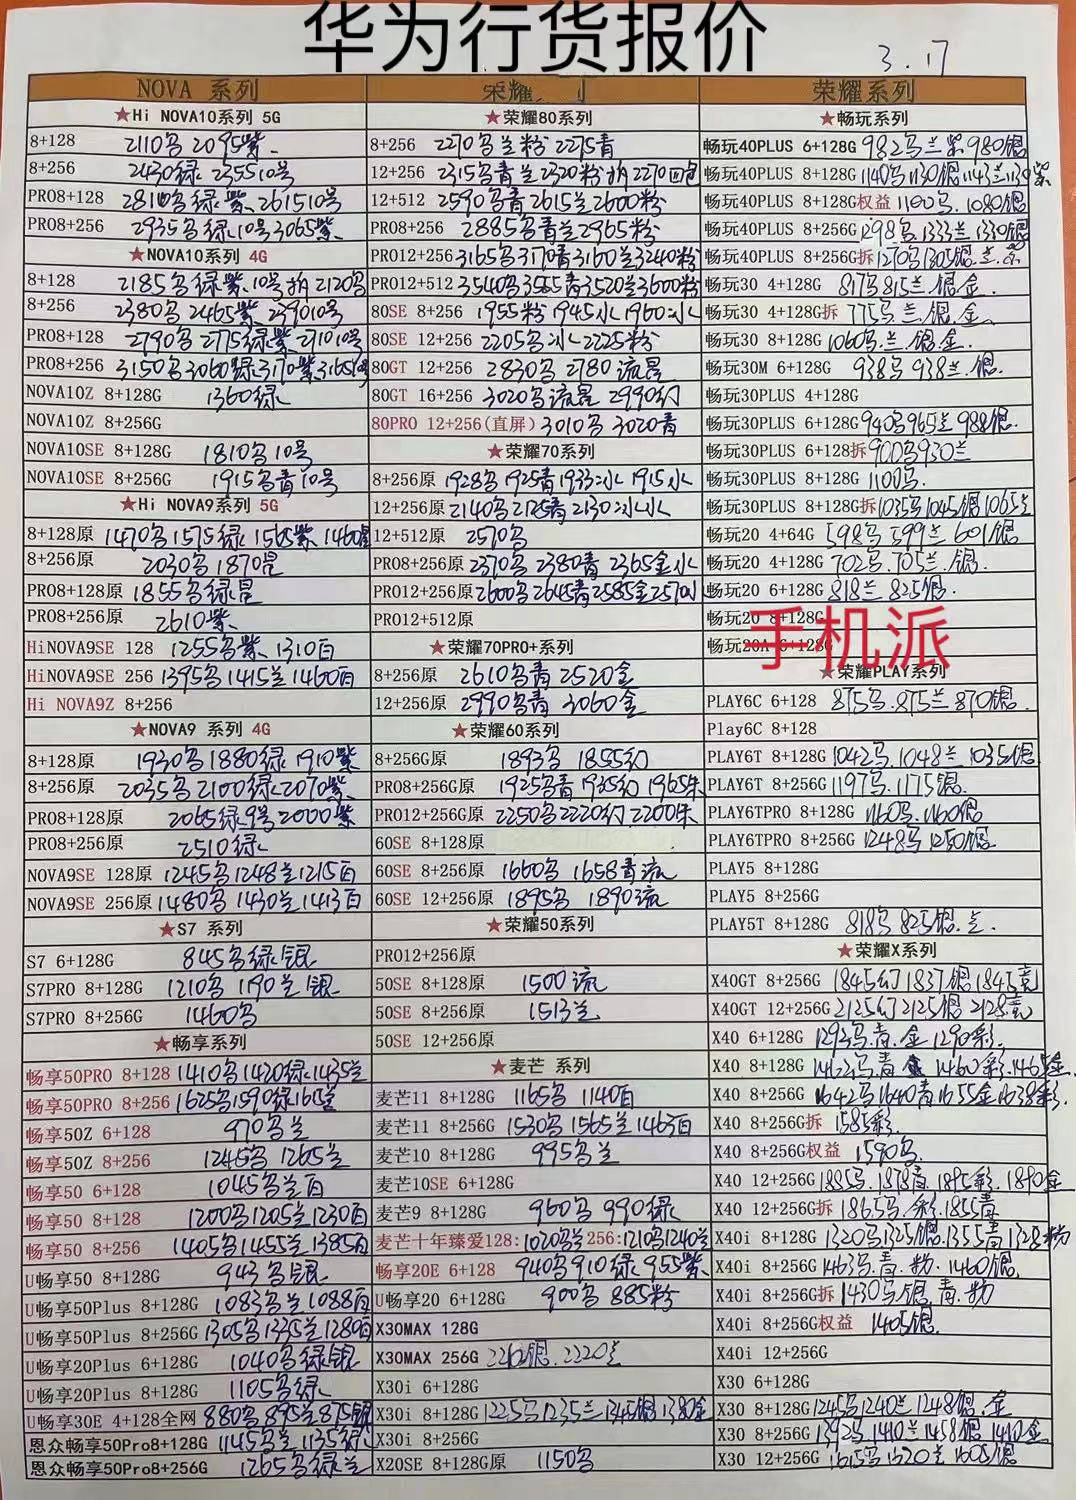 华为行货报价
3.17
NOVA 系列
★Hi NOVA10系列 5G
8+128 2110乌 2095紫
8+256 2430绿 2355 10号
PRO8+128 2810乌绿紫 2615 10号
PRO8+256 2935乌绿 10号 3065紫
★NOVA10系列 4G
8+128 2185乌绿紫 10号拆2120乌
8+256 2380乌 2465紫 2390 10号
PRO8+128 2790乌 2775绿紫 2710 10号
PRO8+256 3150乌 3060绿 3170紫
NOVA10Z 8+128G 1360绿
NOVA10Z 8+256G
NOVA10SE 8+128G 1810乌 10号
NOVA10SE 8+256G 1915乌青 10号
★Hi NOVA9系列 5G
8+128原 1470乌 1575绿 1565紫 1460星
8+256原 2030乌 1870星
PRO8+128原 1855乌绿星
PRO8+256原 2610紫
HiNOVA9SE 128 1255乌紫 1310白
HiNOVA9SE 256 1395乌 1415兰 1460白
Hi NOVA9Z 8+256
★NOVA9 系列 4G
8+128原 1930乌 1880绿 1910紫
8+256原 2035乌 2100绿 2070紫
PRO8+128原 2065绿 9号 2000紫
PRO8+256原 2510绿
NOVA9SE 128原 1245乌 1248兰 1215白
NOVA9SE 256原 1480乌 1430兰 1413白
★S7 系列
S7 6+128G 845乌绿银
S7PRO 8+128G 1210乌 1190兰银
S7PRO 8+256G 1460乌
★畅享系列
畅享50PRO 8+128 1410乌 1420绿 1435兰
畅享50PRO 8+256 1625乌 1590绿
畅享50Z 6+128 970乌兰
畅享50Z 8+256 1245乌 1265兰
畅享50 6+128 1045乌兰白
畅享50 8+128 1200乌 1205兰 1230白
畅享50 8+256 1405乌 1455兰 1385白
U畅享50 8+128G 943乌银
U畅享50Plus 8+128G 1083乌兰 1088白
U畅享50Plus 8+256G 1305乌 1335兰 1280白
U畅享20Plus 6+128G 1040乌绿银
U畅享20Plus 8+128G 1105乌绿
U畅享30E 4+128全网 880乌 895兰 875银
恩众畅享50Pro8+128G 1145乌兰 1135绿
恩众畅享50Pro8+256G 1265乌绿兰
荣耀
★荣耀80系列
8+256 2270乌兰粉 2275青
12+256 2315乌青兰 2320粉 拆2270回包
12+512 2590乌青 2615兰 2600粉
PRO8+256 2885乌青兰 2965粉
PRO12+256 3165乌 3170青 3160兰 3240粉
PRO12+512 3540乌 3565青 3520兰 3600粉
80SE 8+256 1955粉 1945水 1960冰水
80SE 12+256 2205乌冰 2225粉
80GT 12+256 2830乌 2780流星
80GT 16+256 3020乌流星 2990幻
80PRO 12+256(直屏) 3010乌 3020青
★荣耀70系列
8+256原 1928乌 1925青 1933冰 1915水
12+256原 2140乌 2125青 2130冰水
12+512原 2570乌
PRO8+256原 2370乌 2380青 2365金水
PRO12+256原 2600乌 2645青 2585金 2570水
PRO12+512原
★荣耀70PRO+系列
8+256原 2610乌青 2520金
12+256原 2990乌青 3060金
★荣耀60系列
8+256G原 1893乌 1855幻
PRO8+256G原 1925乌青 1935幻 1965朱
PRO12+256G原 2250乌 2220幻 2200朱
60SE 8+128原
60SE 8+256原 1660乌 1658青流
60SE 12+256原 1895乌 1890流
★荣耀50系列
PRO12+256原
50SE 8+128原 1500流
50SE 8+256原 1513兰
50SE 12+256原
★麦芒 系列
麦芒11 8+128G 1165乌 1140白
麦芒11 8+256G 1530乌 1565兰 1463白
麦芒10 8+128G 995乌兰
麦芒10SE 6+128G
麦芒9 8+128G 960乌 990绿
麦芒十年臻爱128:1020乌兰 256:1210乌 1240兰
畅享20E 6+128 940乌 910绿 955紫
U畅享20 6+128G 900乌 885粉
X30MAX 128G
X30MAX 256G 2242银 2220兰
X30i 6+128G
X30i 8+128G 1225乌 1235兰 1345银 1380金
X30i 8+256G
X20SE 8+128G原 1150乌
荣耀系列
★畅玩系列
畅玩40PLUS 6+128G 982乌兰紫 980银
畅玩40PLUS 8+128G 1140乌 1130银 1143兰 1130紫
畅玩40PLUS 8+128G权益 1100乌 1080银
畅玩40PLUS 8+256G 1298乌 1333兰 1330银
畅玩40PLUS 8+256G拆 1270乌 1305银兰
畅玩30 4+128G 817乌 815兰 银金
畅玩30 4+128G拆 775乌兰银金
畅玩30 8+128G 1060乌兰银金
畅玩30M 6+128G 938乌 938兰 银
畅玩30PLUS 4+128G
畅玩30PLUS 6+128G 940乌 965兰 988银
畅玩30PLUS 6+128拆 900乌 930兰
畅玩30PLUS 8+128G 1100乌
畅玩30PLUS 8+128G拆 1035乌 1045银 1065兰
畅玩20 4+64G 598乌 599兰 601银
畅玩20 4+128G 702乌 705兰 银
畅玩20 6+128G 818兰 825银
畅玩20 8+128G
手机派
畅玩20A 6+128G
★荣耀PLAY系列
PLAY6C 6+128 875乌 875兰 870银
Play6C 8+128
PLAY6T 8+128G 1042乌 1048兰 1035银
PLAY6T 8+256G 1197乌 1175银
PLAY6TPRO 8+128G 1160乌 1160银
PLAY6TPRO 8+256G 1248乌 1250银
PLAY5 8+128G
PLAY5 8+256G
PLAY5T 8+128G 818乌 825银兰
★荣耀X系列
X40GT 8+256G 1845幻 1837银 1845竞
X40GT 12+256G 2125幻 2125银 2128竞
X40 6+128G 1293乌青金 1290彩
X40 8+128G 1462乌青 1460彩 1465金
X40 8+256G 1642乌 1640青 1655金 1638彩
X40 8+256G拆 1585彩
X40 8+256G权益 1590乌
X40 12+256G 1885乌 1878青 1895彩 1890金
X40 12+256G拆 1865乌彩 1855青
X40i 8+128G 1320乌 1325银 1355青 1328粉
X40i 8+256G 1463乌青粉 1460银
X40i 8+256G拆 1430乌银青粉
X40i 8+256G权益 1405银
X40i 12+256G
X30 6+128G
X30 8+128G 1245乌 1240兰 1248银金
X30 8+256G 1392乌 1410兰 1458银 1410金
X30 12+256G 1615乌 1620兰 1605银